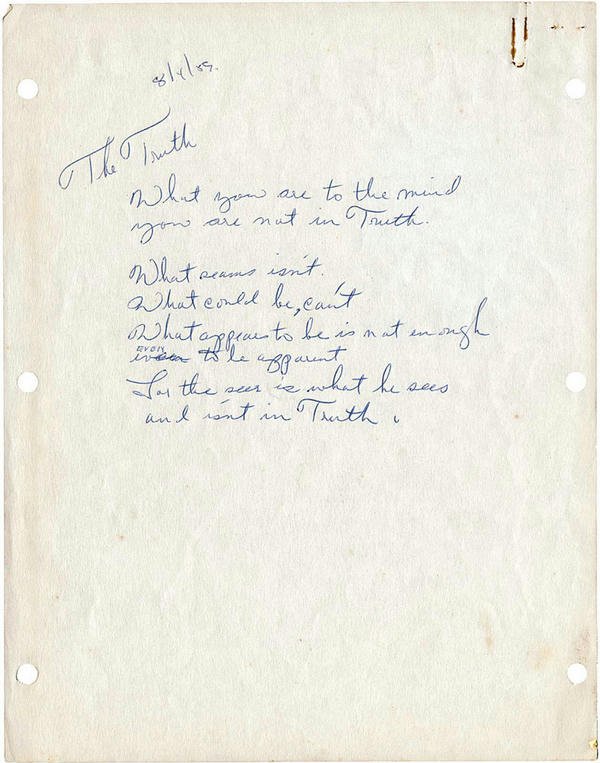 8/4/59.
The Truth
What you are to the mind
you are not in Truth.
What seams isn't.
What could be, can't
What appears to be is not enough
EVEN
to be apparent
For the seer is what he sees
and isn't in Truth.